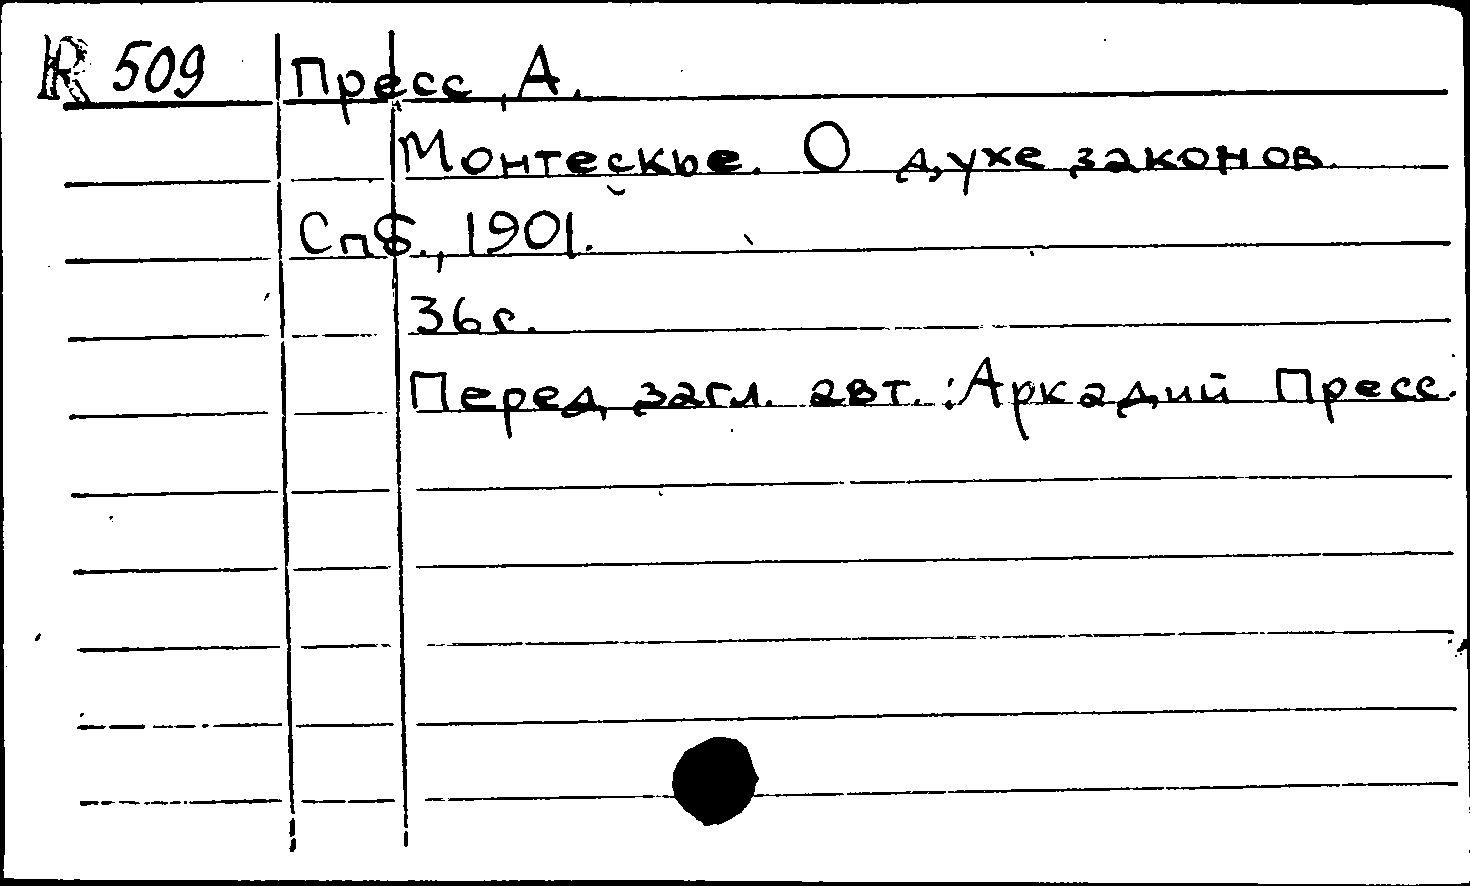 R 509 Пресс, А.
Монтескье. О духе законов.
Спб., 1901.
36 с.
Перед загл. авт.: Аркадий Пресс.